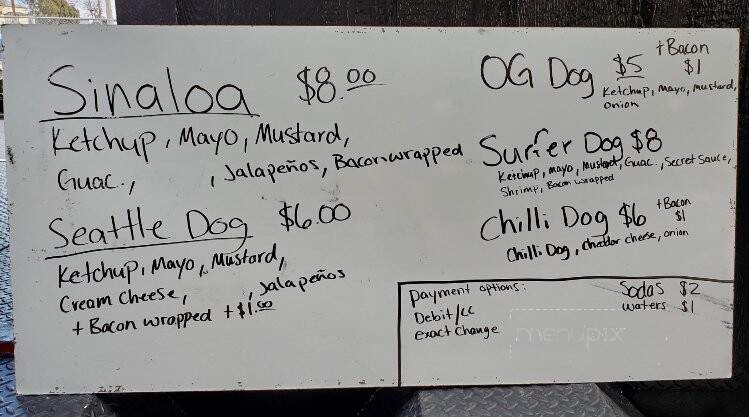 Sinaloa $8.00
Ketchup, Mayo, Mustard,
Guac., , Jalapeños, Bacon wrapped
Seattle Dog $6.00
Ketchup, Mayo, Mustard,
Cream Cheese, , Jalapeños
+ Bacon wrapped +$1.00
OG Dog $5 +Bacon $1
Ketchup, Mayo, Mustard,
Onion
Surfer Dog $8
Ketchup, Mayo, Mustard, Guac., Secret Sauce,
Shrimp, Bacon wrapped
Chilli Dog $6 +Bacon $1
Chilli Dog, Cheddar cheese, Onion
Payment options:
Debit/CC
exact Change
Sodas $2
Waters $1
menupix